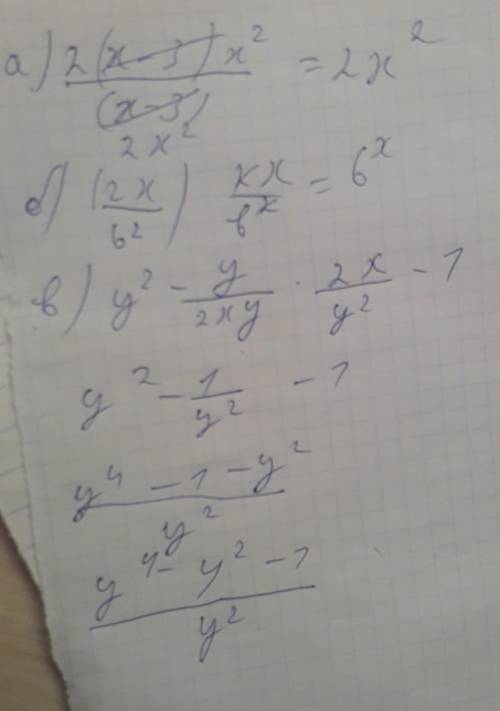 а) 2(x-3)x² / (x-3) = 2x²
2x²
б) (2x / b²) xx / b^x = 6^x
в) y² - y / 2xy · 2x / y² - 1
y² - 1 / y² - 1
y⁴ - 1 - y² / y²
y⁴ - y² - 1 / y²